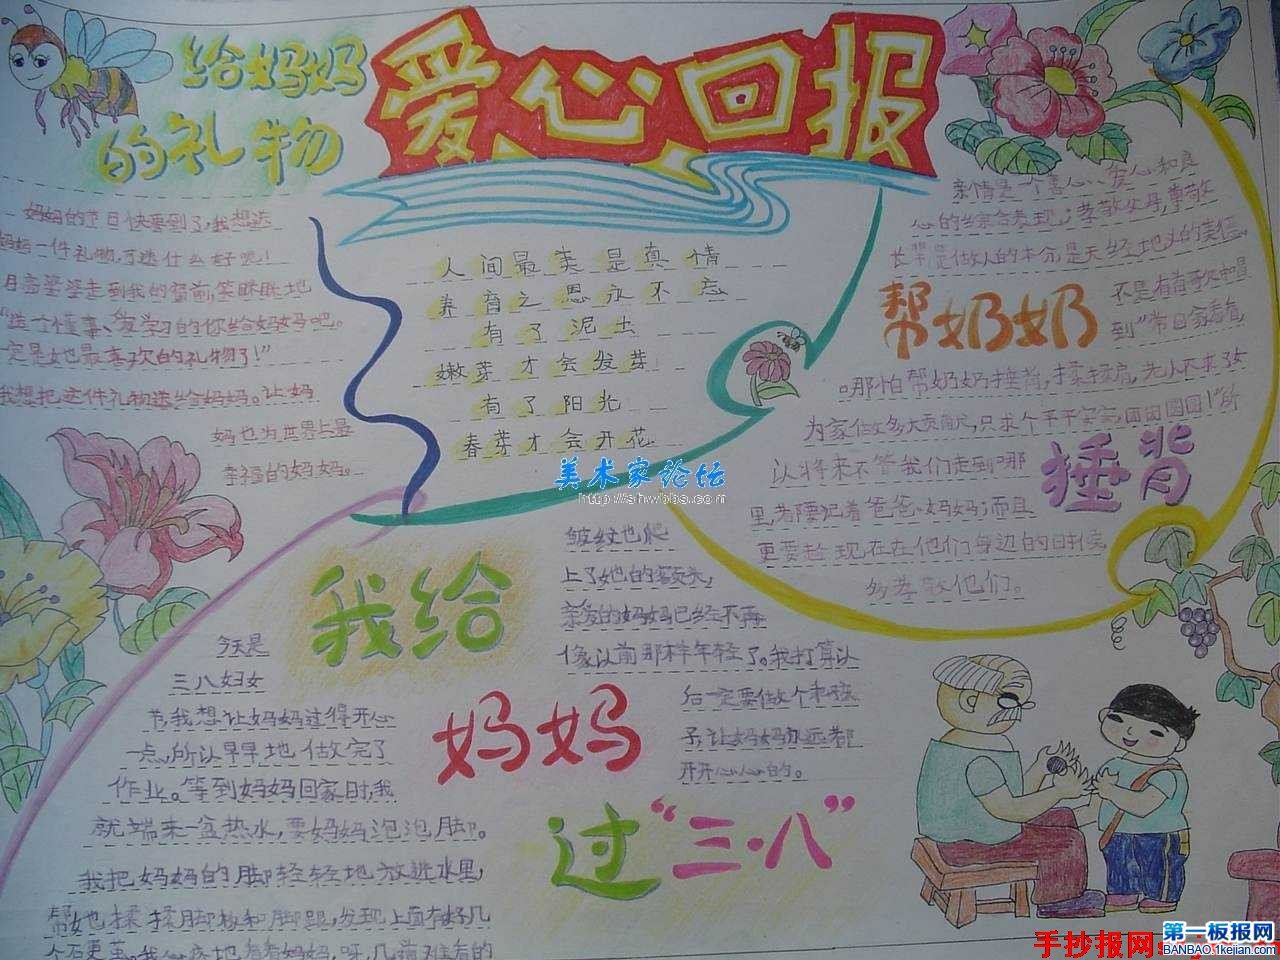 给妈妈
的礼物
爱心回报
妈妈的节日快要到了,我想送
妈妈一件礼物,可送什么好呢!
月亮婆婆走到我的窗前,笑眯眯地
"送个懂事、爱学习的你给妈妈吧。
定是她最喜欢的礼物了!"
我想把这件礼物送给妈妈。让妈
妈也为世界上最
幸福的妈妈。
人间最美是真情
养育之恩永不忘
有了泥土
嫩芽才会发芽
有了阳光
春芽才会开花
亲情是一个善心、爱心和良
心的综合表现;孝敬父母,尊敬
长辈是做人的本分,是天经地义的美德。
不是有首歌中唱
到"常回家看看
哪怕帮奶奶捶背,揉揉肩,老人不求子女
为家做多大贡献,只求个平平安安,团团圆圆!"所
以将来不管我们走到哪
里,都要记着爸爸、妈妈;而且
更要趁现在在他们身边的时候
多孝敬他们。
帮奶奶
捶背
我给
妈妈
过"三·八"
今天是
三八妇女
节,我想让妈妈过得开心
一点,所以早早地做完了
作业。等到妈妈回家时,我
就端来一盆热水,要妈妈泡泡脚。
我把妈妈的脚轻轻地放进水里,
帮她揉揉脚板和脚跟,发现上面有好几
个石更茧。我心疼地看看妈妈,呀,几道难看的
皱纹也爬
上了她的额头,
亲爱的妈妈已经不再
像以前那样年轻了。我打算以
后一定要做个乖孩
子,让妈妈永远都
开开心心的。
美术家论坛
http://shwbbs.com
手抄报网:
第一板报网
BANBAO.1kejian.com